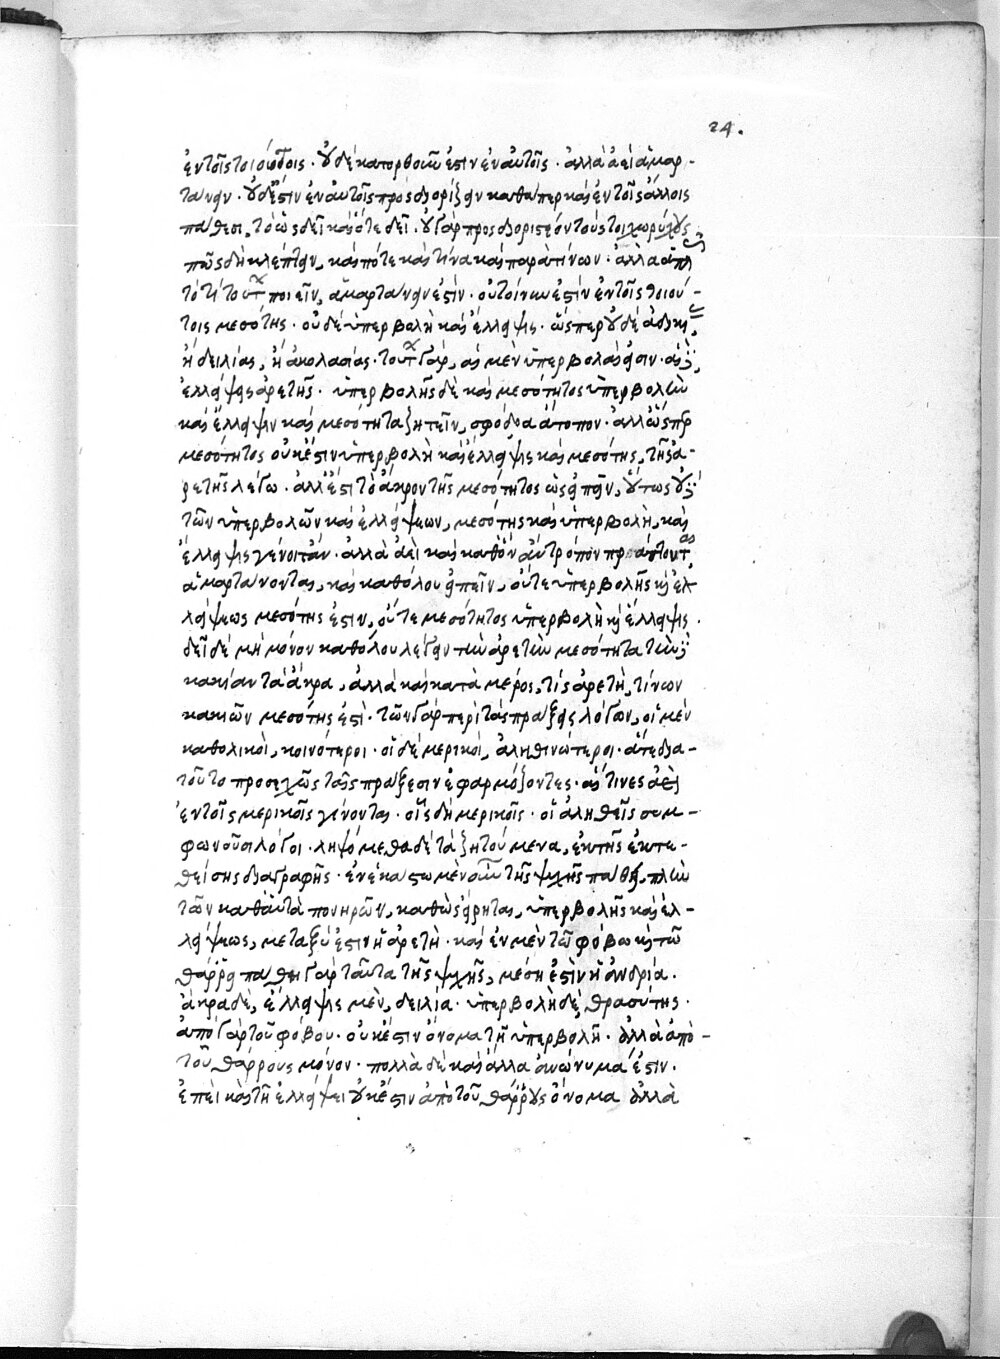 24.
ἐν τοῖς τοιούτοις · οὐδὲ κατορθοῦν ἐστὶν ἐν αὐτοῖς · ἀλλὰ ἀεὶ ἁμαρ-
τάνειν · οὐδέ ἐστιν ἐν αὐτοῖς προσδιορίζειν καθάπερ καὶ ἐν τοῖς ἄλλοις
πάθεσι, τὸ ὡς δεῖ καὶ ὅτε δεῖ · οὐ γὰρ προσδιοριστέον τοὺς τοιχωρύχους
πῶς δὴ κλέπτειν, καὶ πότε καὶ τίνα καὶ παρὰ τίνων · ἀλλὰ ἁπλῶς
τὸ τὶ τούτων ποιεῖν, ἁμαρτάνειν ἐστίν · οὐ τοίνυν ἐστὶν ἐν τοῖς τοιού-
τοις μεσότης · οὐδὲ ὑπερβολὴ καὶ ἔλλειψις · ὥσπερ οὐδὲ ἀδικίας,
ἢ δειλίας, ἢ ἀκολασίας · τούτων γάρ, αἱ μὲν ὑπερβολαί εἰσιν · αἱ δὲ,
ἐλλείψεις ἀρετῆς · ὑπερβολῆς δὲ καὶ μεσότητος ὑπερβολὴν
καὶ ἔλλειψιν καὶ μεσότητα ζητεῖν, σφόδρα ἄτοπον · ἀλλ' ὥσπερ
μεσότητος οὐκ ἔστιν ὑπερβολὴ καὶ ἔλλειψις καὶ μεσότης, τῆς ἀ-
ρετῆς λέγω · ἀλλ' ἔστι τὸ ἄκρον τῆς μεσότητος ὡς εἰπεῖν, οὕτως οὐδὲ
τῶν ὑπερβολῶν καὶ ἐλλείψεων, μεσότης καὶ ὑπερβολὴ, καὶ
ἔλλειψις γένοιτ' ἄν · ἀλλὰ ἀεὶ καὶ καθ' ὃν ἂν τρόπον πράττοντας
ἁμαρτάνοντας, καὶ καθόλου εἰπεῖν, οὔτε ὑπερβολῆς καὶ ἐλ-
λείψεως μεσότης ἐστιν, οὔτε μεσότητος ὑπερβολὴ καὶ ἔλλειψις ·
δεῖ δὲ μὴ μόνον καθόλου λέγειν τὴν ἀρετὴν μεσότητα τὴν δὲ
κακίαν τὰ ἄκρα, ἀλλὰ καὶ κατὰ μέρος, τίς ἀρετὴ, τίνων
κακιῶν μεσότης ἐστί · τῶν γὰρ περὶ τὰς πράξεις λόγων, οἱ μὲν
καθολικοὶ, κοινότεροι · οἱ δὲ μερικοὶ, ἀληθινώτεροι · ἅτε δια-
τοῦτο προσεχῶς ταῖς πράξεσιν ἐφαρμόζοντες · αἵ τινες ἀεὶ
ἐν τοῖς μερικοῖς γίνονται · οἷς δὴ μερικοῖς · οἱ ἀληθεῖς συμ-
φωνοῦσι λόγοι · ληψόμεθα δὲ τὰ ζητούμενα, ἐκ τῆς ἐκτε-
θείσης διαγραφῆς · ἐν ἑκάστω μὲν οὖν τῆς ψυχῆς πάθει, πλὴν
τῶν καθ' αὑτὰ πονηρῶν, καθὼς εἴρηται, ὑπερβολῆς καὶ ἐλ-
λείψεως, μεταξύ ἐστιν ἡ ἀρετὴ · καὶ ἐν μὲν τῶ φόβω καὶ τῶ
θάρρει πάθει γὰρ ταῦτα τῆς ψυχῆς, μέση ἐστὶν ἡ ἀνδρία ·
ἄκρα δὲ, ἔλλειψις μὲν, δειλία · ὑπερβολὴ δὲ, θρασύτης ·
ἀπὸ γὰρ τοῦ φόβου · οὐκ ἔστιν ὄνομα τῆ ὑπερβολῆ · ἀλλὰ ἀπὸ -
τοῦ θάρρους μόνον · πολλὰ δὲ καὶ ἄλλα ἀνώνυμά ἐστιν ·
ἐπεὶ καὶ τῆ ἐλλείψει οὐκ ἔστιν ἀπὸ τοῦ θάρρους ὄνομα ἀλλὰ